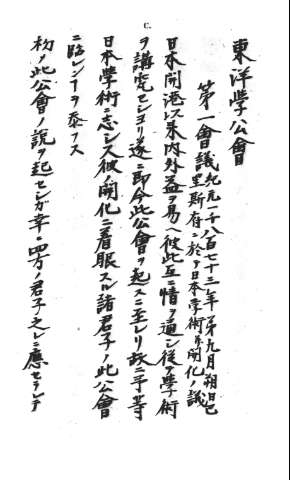 C.
東洋學公會
第一會議 紀元一千八百七十三年第九月朔日巴
里斯府ニ於テ日本學術并開化ノ議
日本開港以来内外益ヲ易ヘ彼此互ニ情ヲ通シ従テ學術
ヲ講究セシヨリ遂ニ即今此公會ヲ起スニ至レリ故ニ平等
日本學術ニ志シ又彼ノ開化ニ着眼スル諸君子ノ此公會
ニ臨レンヿヲ希フス
初メ此公會ノ説ヲ起セシガ幸ニ四方ノ君子之レニ應セラレテ